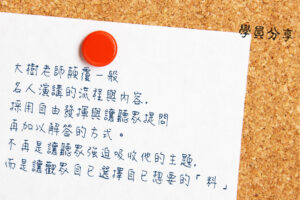 學員分享
大樹老師顛覆一般
名人演講的流程與內容,
採用自由發揮與讓聽眾提問
再加以解答的方式。
不再是讓聽眾強迫吸收他的主題,
而是讓觀眾自己選擇自己想要的「料」